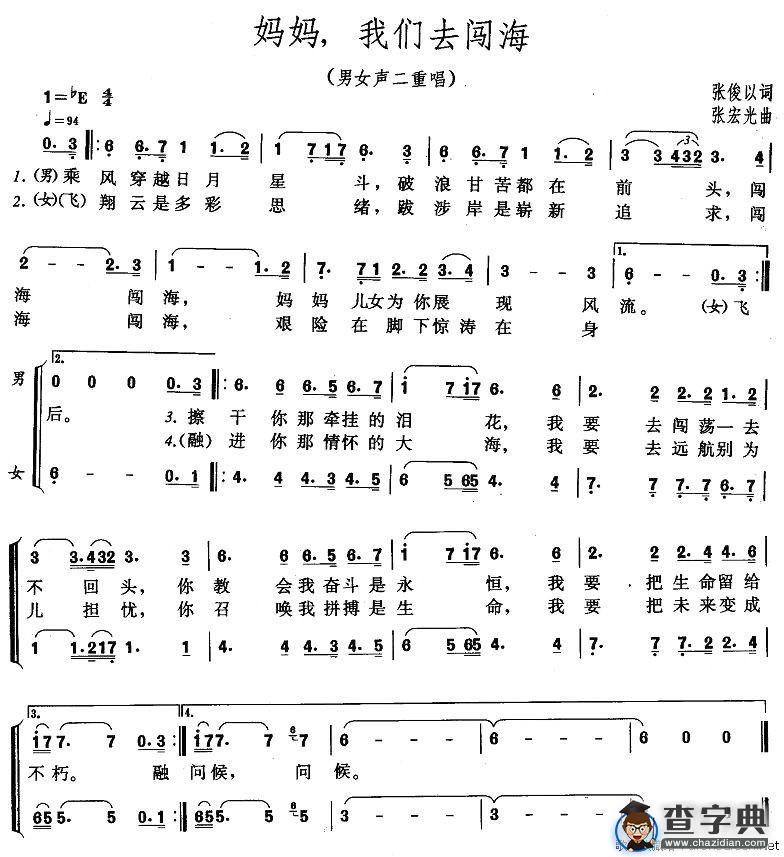 妈妈，我们去闯海
（男女声二重唱）
1=♭E 4/4
♩=94
张俊以词
张宏光曲
0. 3 6 6. 7 1 1. 2 3 1 7 1 7 6. 3 6. 7 1 3 1. 2 3 3 432 3. 4
1.（男）乘 风 穿越日 月 星 斗，破 浪 甘 苦都 在 前 头，闯
2.（女）（飞）翔 云是多 彩 思 绪，跋 涉 岸 是崭 新 追 求，闯
2 - - 2. 3 1 - - 1. 2 7. 7 1 2. 2 3. 4 3 - 3 - 1. 6 - - 0. 3
海 闯 海， 妈 妈 儿女为 你展 现 风 流。（女）飞
海 闯 海， 艰 险 在 脚下惊 涛 在 身
2.
男 0 0 0 0. 3 6. 6 6. 5 6. 7 i 7 i7 6. 6 2. 2 2. 2 1. 2
后。 3. 擦 干 你那牵挂的泪 花，我 要 去闯荡一去
4.（融）进 你那情怀的大 海，我 要 去远航别为
女 6 - - 0. 1 4. 4 4. 3 4. 5 6 5 65 4. 4 7. 7 7. 7 6. 7
3 3. 432 3. 3 6. 6 6. 5 6. 7 i 7 i7 6. 6 2. 2 2. 4 4. 6
不 回 头，你 教 会我奋斗是 永 恒，我 要 把生命留给
儿 担 忧，你 召 唤我拼搏是 生 命，我 要 把未来变成
1 1. 217 1. 1 4. 4 4. 3 4. 5 6 5 65 4. 4 7. 7 7. 2 2. 4
3. i7 7. 7 0. 3 4. i7 7. 7 6 6 - - - 6 - - - 6 - - - 6 0 0
不 朽。 融 问 候， 问 候。
65 5. 5 0. 1 65 5. 5 3 - - - 3 - - -
查字典
www.chazidian.com